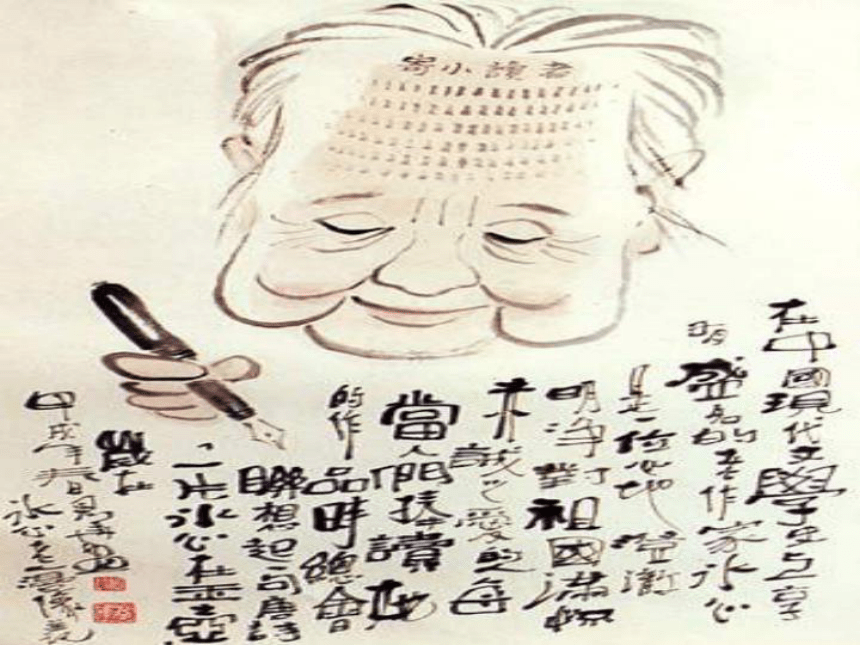 寄小讀者
在中國現代文學史上享
有盛名的女作家冰心
是一位心地澄澈
明淨對祖國滿懷
赤誠之愛的人每
當人們捧讀她
的作品時總會
聯想起一句唐詩
「一片冰心在玉壺
歲在
甲戌年春日
冰心老人漫像